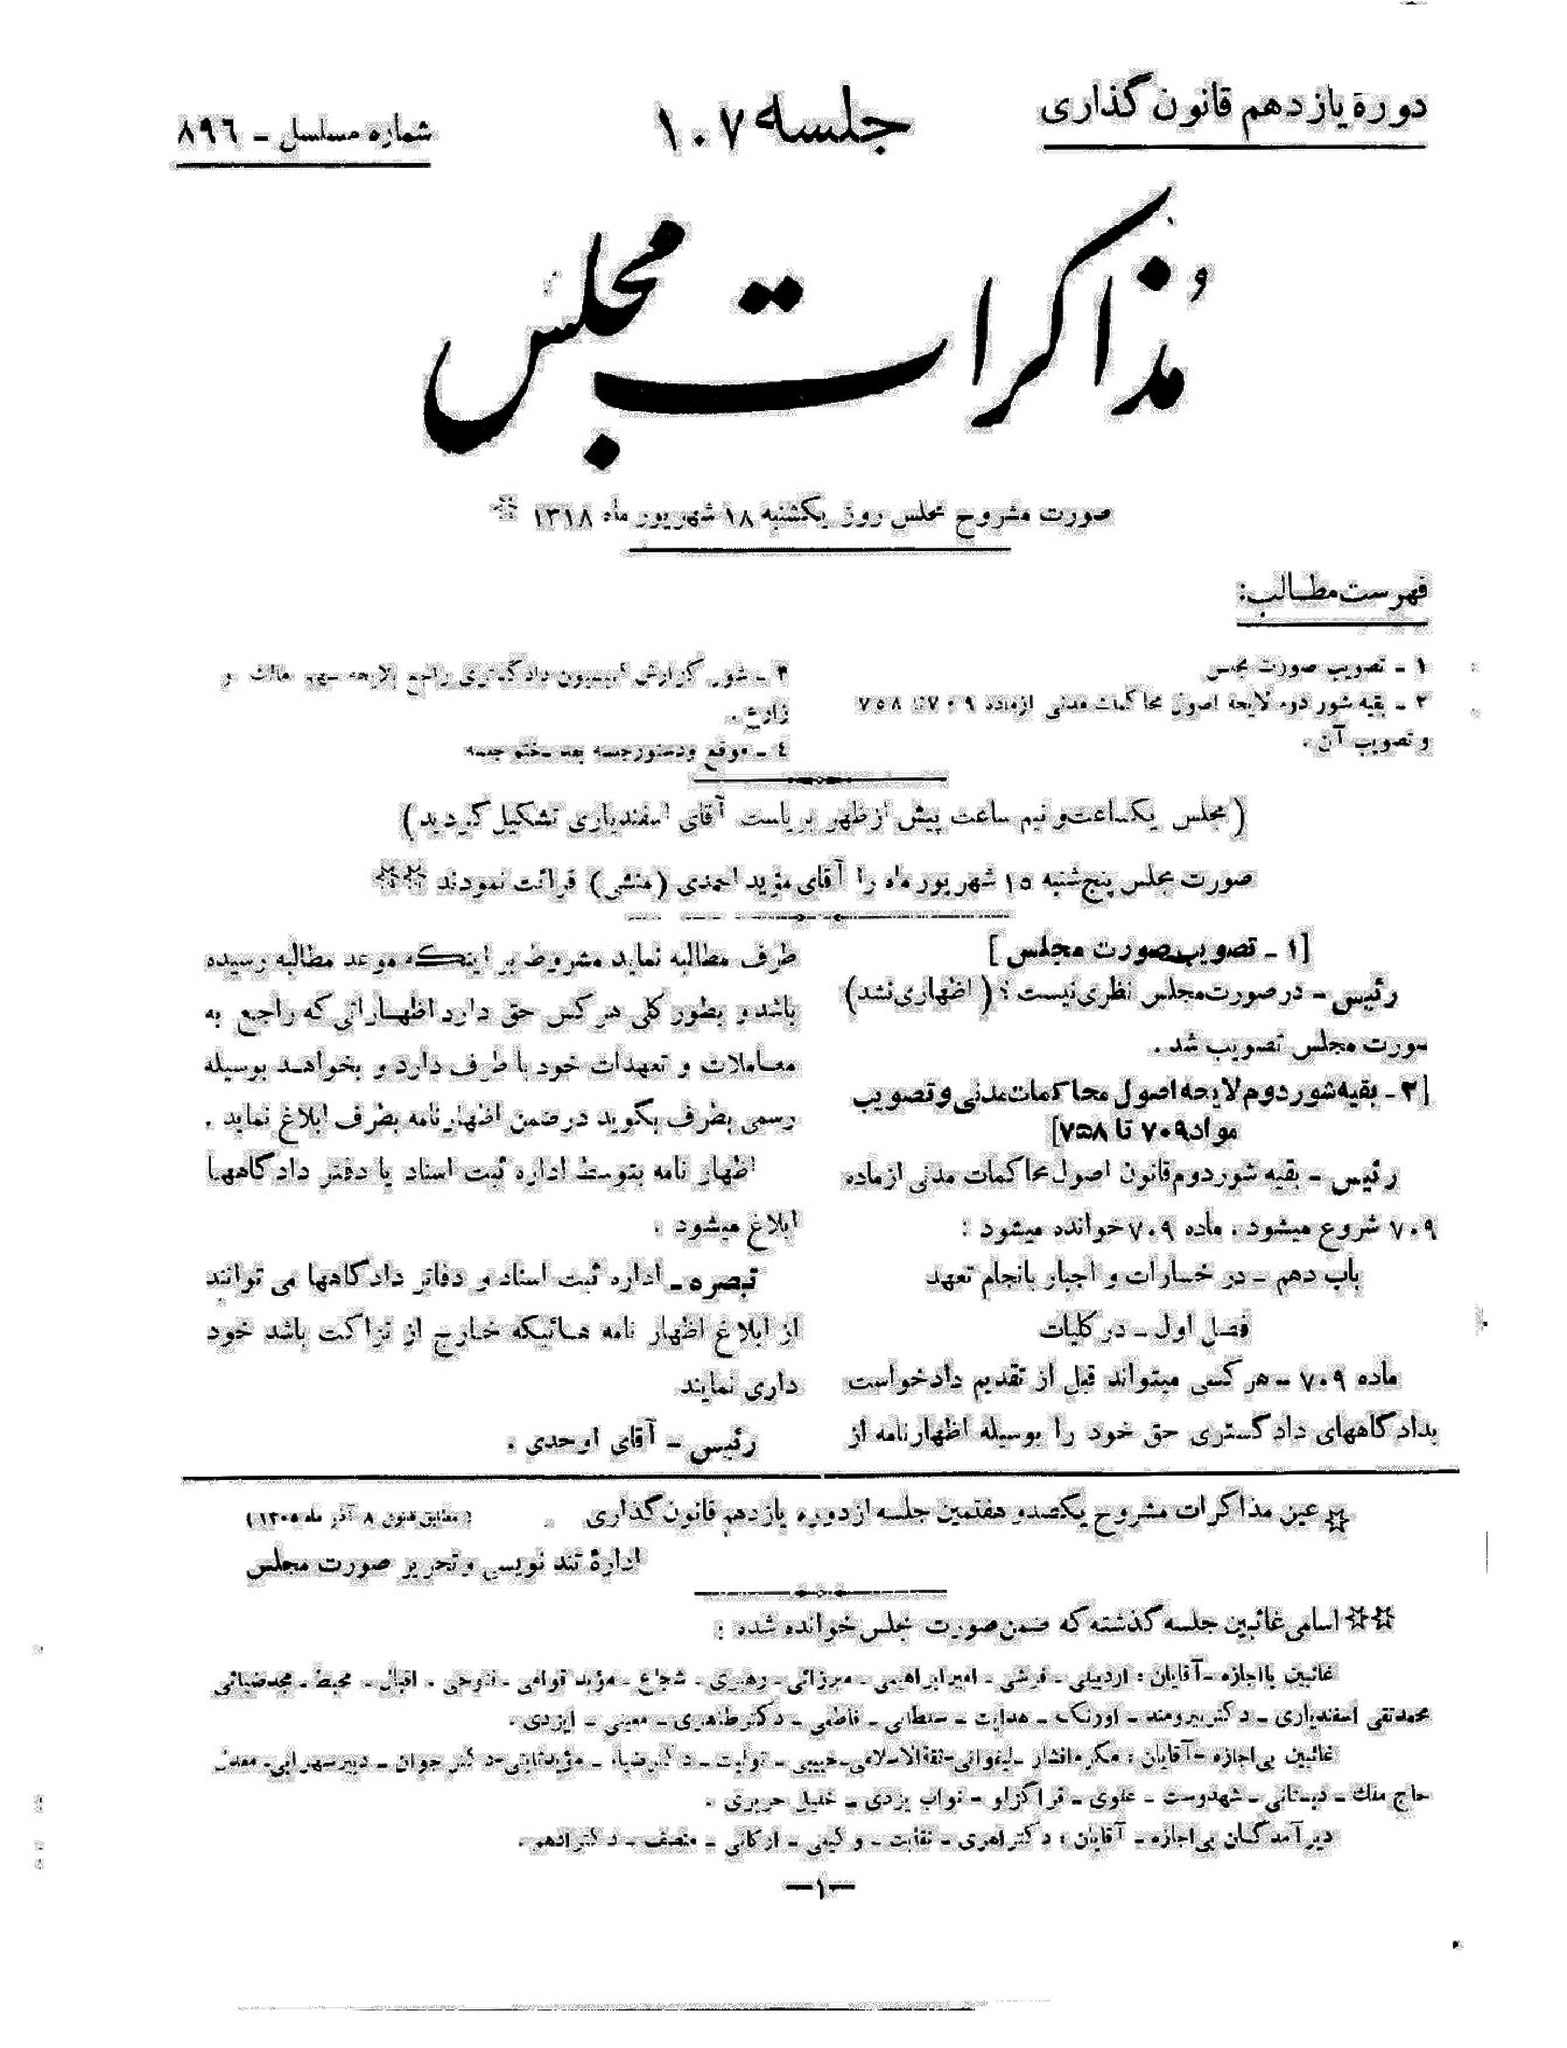 دورهٔ یازدهم قانون گذاری
جلسه ۱۰۷
شماره مسلسل ـ ۸۹٦
مذاکرات مجلس
صورت مشروح مجلس روز یکشنبه ۱۸ شهریور ماه ۱۳۱۸ *
فهرست مطالب:
۱ ـ تصویب صورت مجلس
۲ ـ بقیه شور دوم لایحه اصول محاکمات مدنی از ماده ۷۰۹ تا ۷۵۸
و تصویب آن .
۳ ـ شور گزارش کمیسیون دادگستری راجع بلایحه سهم مالك و
زارع .
٤ ـ موقع و دستور جلسه بعد ـ ختم جلسه
(مجلس یکساعت و نیم ساعت پیش از ظهر بریاست آقای اسفندیاری تشکیل گردید)
صورت مجلس پنجشنبه ۱۵ شهریور ماه را آقای مؤید احمدی (منشی) قرائت نمودند **
[۱ ـ تصویب صورت مجلس]
رئیس ـ در صورت مجلس نظری نیست ؟ (اظهاری نشد)
صورت مجلس تصویب شد .
[۲ ـ بقیه شور دوم لایحه اصول محاکمات مدنی و تصویب
مواد ۷۰۹ تا ۷۵۸]
رئیس ـ بقیه شور دوم قانون اصول محاکمات مدنی از ماده
۷۰۹ شروع میشود . ماده ۷۰۹ خوانده میشود :
باب دهم ـ در خسارات و اجبار بانجام تعهد
فصل اول ـ در کلیات
ماده ۷۰۹ ـ هر کسی میتواند قبل از تقدیم دادخواست
بدادگاههای دادگستری حق خود را بوسیله اظهارنامه از
طرف مطالبه نماید مشروط بر اینکه موعد مطالبه رسیده
باشد و بطور کلی هر کس حق دارد اظهاراتی که راجع به
معاملات و تعهدات خود با طرف دارد و بخواهد بوسیله
رسمی بطرف بگوید در ضمن اظهارنامه بطرف ابلاغ نماید .
اظهار نامه بتوسط اداره ثبت اسناد یا دفتر دادگاهها
ابلاغ میشود .
تبصره ـ اداره ثبت اسناد و دفاتر دادگاهها می توانند
از ابلاغ اظهار نامه هائیکه خارج از نزاکت باشد خود
داری نمایند
رئیس ـ آقای اوحدی .
* عین مذاکرات مشروح یکصد و هفتمین جلسه از دوره یازدهم قانون گذاری (مطابق قانون ۸ آذر ماه ۱۳۰۵)
ادارهٔ تند نویسی و تحریر صورت مجلس
** اسامی غائبین جلسه گذشته که ضمن صورت مجلس خوانده شده :
غائبین با اجازه ـ آقایان : اردبیلی ـ قرشی ـ امیر ابراهیمی ـ میرزائی ـ رهبری ـ شجاع ـ مؤید قوامی ـ فتوحی ـ اقبال ـ محیط ـ مجد ضیائی
محمدتقی اسفندیاری ـ دکتر نیرومند ـ اورنگ ـ هدایت ـ سلطانی ـ فاطمی ـ دکتر طاهری ـ معینی ـ ایزدی .
غائبین بی اجازه ـ آقایان : مکرم افشار ـ لیقوانی ـ ثقةالاسلامی ـ حبیبی ـ تولیت ـ دکتر ضیاء ـ مؤید ثابتی ـ دکتر جوان ـ دبیر سهرابی ـ معدل
حاج ملك ـ دبستانی ـ شهدوست ـ علوی ـ قراگزلو ـ نواب یزدی ـ خلیل حریری .
دیر آمدگان بی اجازه ـ آقایان : دکتر اهری ـ نقابت ـ وکیلی ـ ارکانی ـ منصف ـ دکتر ادهم .
ـ۱ـ